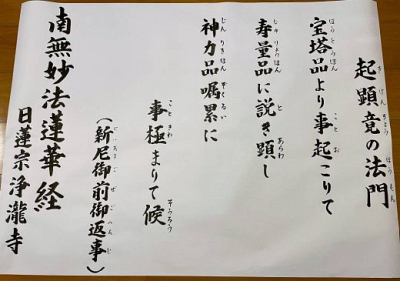 起顕竟の法門
宝塔品より事起こりて
寿量品に説き顕し
神力品嘱累に
事極まりて候
(新尼御前御返事)
南無妙法蓮華経
日蓮宗浄瀧寺